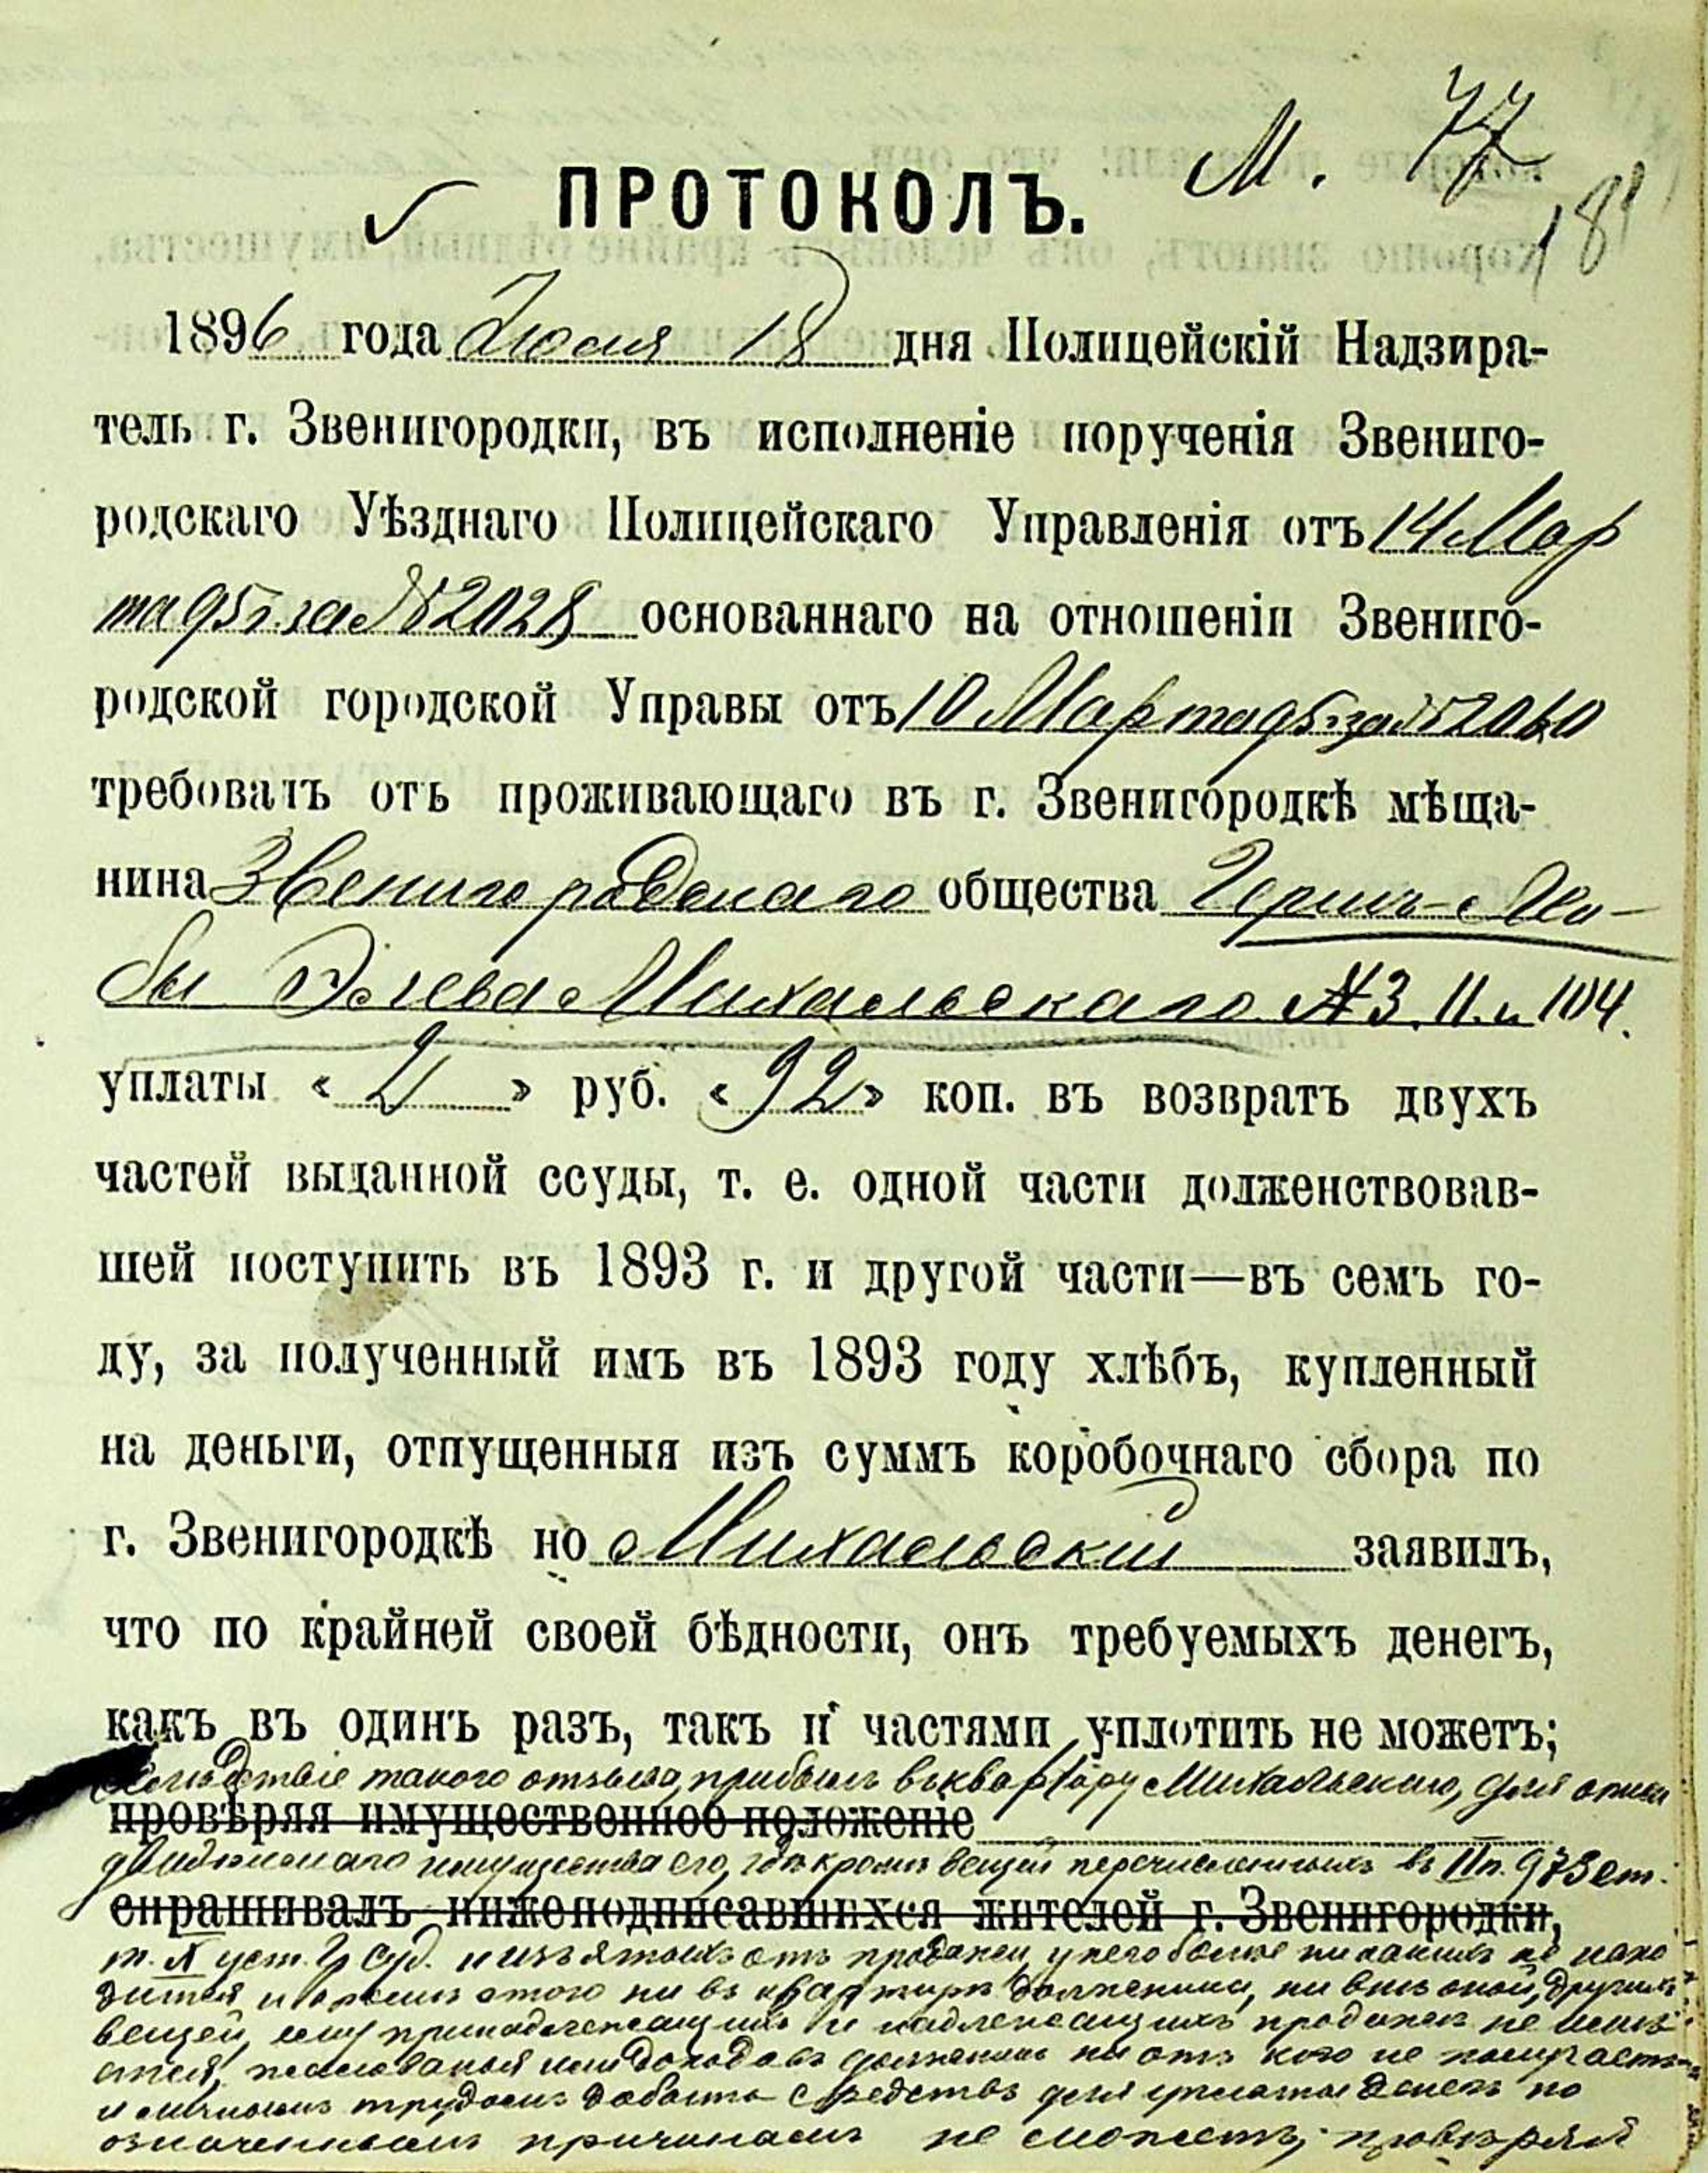 М. 77
181
ПРОТОКОЛЪ.
1896 года Іюля 18 дня Полицейскій Надзира-
тель г. Звенигородки, въ исполненіе порученія Звениго-
родскаго Уѣзднаго Полицейскаго Управленія отъ 14 Мар
та 95 г. за № 2028 основаннаго на отношеніи Звениго-
родской городской Управы отъ 10 Марта 95 г. за № 2060
требовалъ отъ проживающаго въ г. Звенигородкѣ мѣща-
нина Звенигородскаго общества Герша-Лей-
бы Михальскаго № 3. 11. и 104.
уплаты « 2 » руб. « 92 » коп. въ возвратъ двухъ
частей выданной ссуды, т. е. одной части долженствовав-
шей поступить въ 1893 г. и другой части—въ семъ го-
ду, за полученный имъ въ 1893 году хлѣбъ, купленный
на деньги, отпущенныя изъ суммъ коробочнаго сбора по
г. Звенигородкѣ но Михальскій заявилъ,
что по крайней своей бѣдности, онъ требуемыхъ денегъ,
какъ въ одинъ разъ, такъ и частями уплотить не можетъ;
вслѣдствіе такого отзыва, прибылъ въ квартиру Михальскаго, для описи
провѣряя имущественное положеніе
движимаго имущества его, гдѣ кромѣ вещей перечисленныхъ въ II п. 973 ст.
спрашивалъ нижеподписавшихся жителей г. Звенигородки,
т. X уст. Гр Суд. и изъятыхъ отъ продажи, у него болѣе никакихъ не нахо
дится и кромѣ этого ни въ квартирѣ должника, ни внѣ оной, другихъ
вещей, ему принадлежащихъ и подлежащихъ продажѣ не имѣ
ется, жалованья или доходовъ должникъ ни отъ кого не получаетъ
и личнымъ трудомъ добыть средствъ для уплаты денегъ по
означеннымъ причинамъ не можетъ; провѣряя